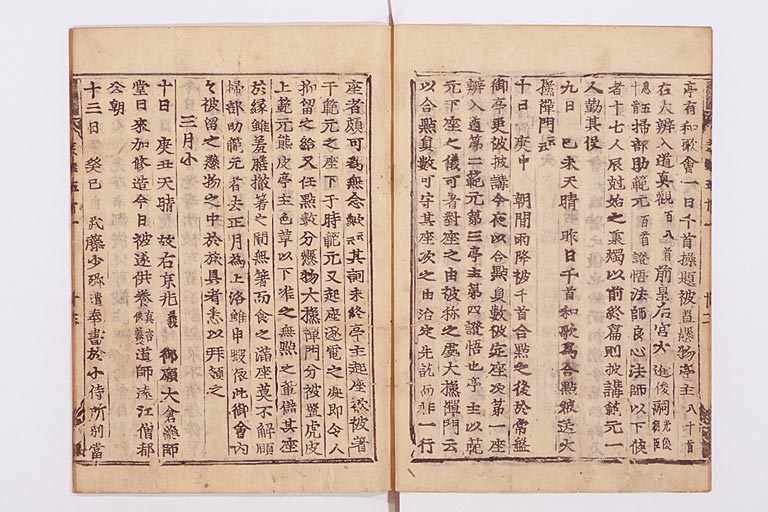 亭有和歌會一日千首探題被置懸物亭主八十首
右大辨入道真觀百八首前皇后宮大進俊嗣光俊朝臣
息五十首掃部助範元百首證悟法師良心法師以下作
者十七人辰尅始之秉燭以前終篇則披講範元一
人勤其役
九日 己未天晴 昨日千首和歌為合點被送大
掾禪門云云
十日 庚申 朝間雨降被千首合點之後於常盤
御亭更被披講今夜以合點員數被定座次第一座
辨入道第二範元第三亭主第四證悟也亭主以範
元下座之儀可着對座之由被称之處大掾禪門云
以合點員數可守其座次之由治定先訖而非一行
座者頗可為無念歟云云其詞未終亭主起座被着
于範元之座下于時範元又起座逐電之處即令人
抑留之給又任點數分懸物大掾禪門分被置虎皮
上範元熊皮亭主色革以下准之無點之輩儲其座
於縁雖羞膳撤箸之間無箸而食之滿座莫不解頤
掃部助範元者去正月為上洛雖申暇依此御會内
々被留之懸物之中於旅具者悉以拜領之
三月小
十日 己丑天晴 故右京兆義時御願大倉藥師
堂日來加修造今日被遂供養真言供養導師遠江僧都
公朝
十三日 癸巳 武藤少卿遣奉書於小侍所別當